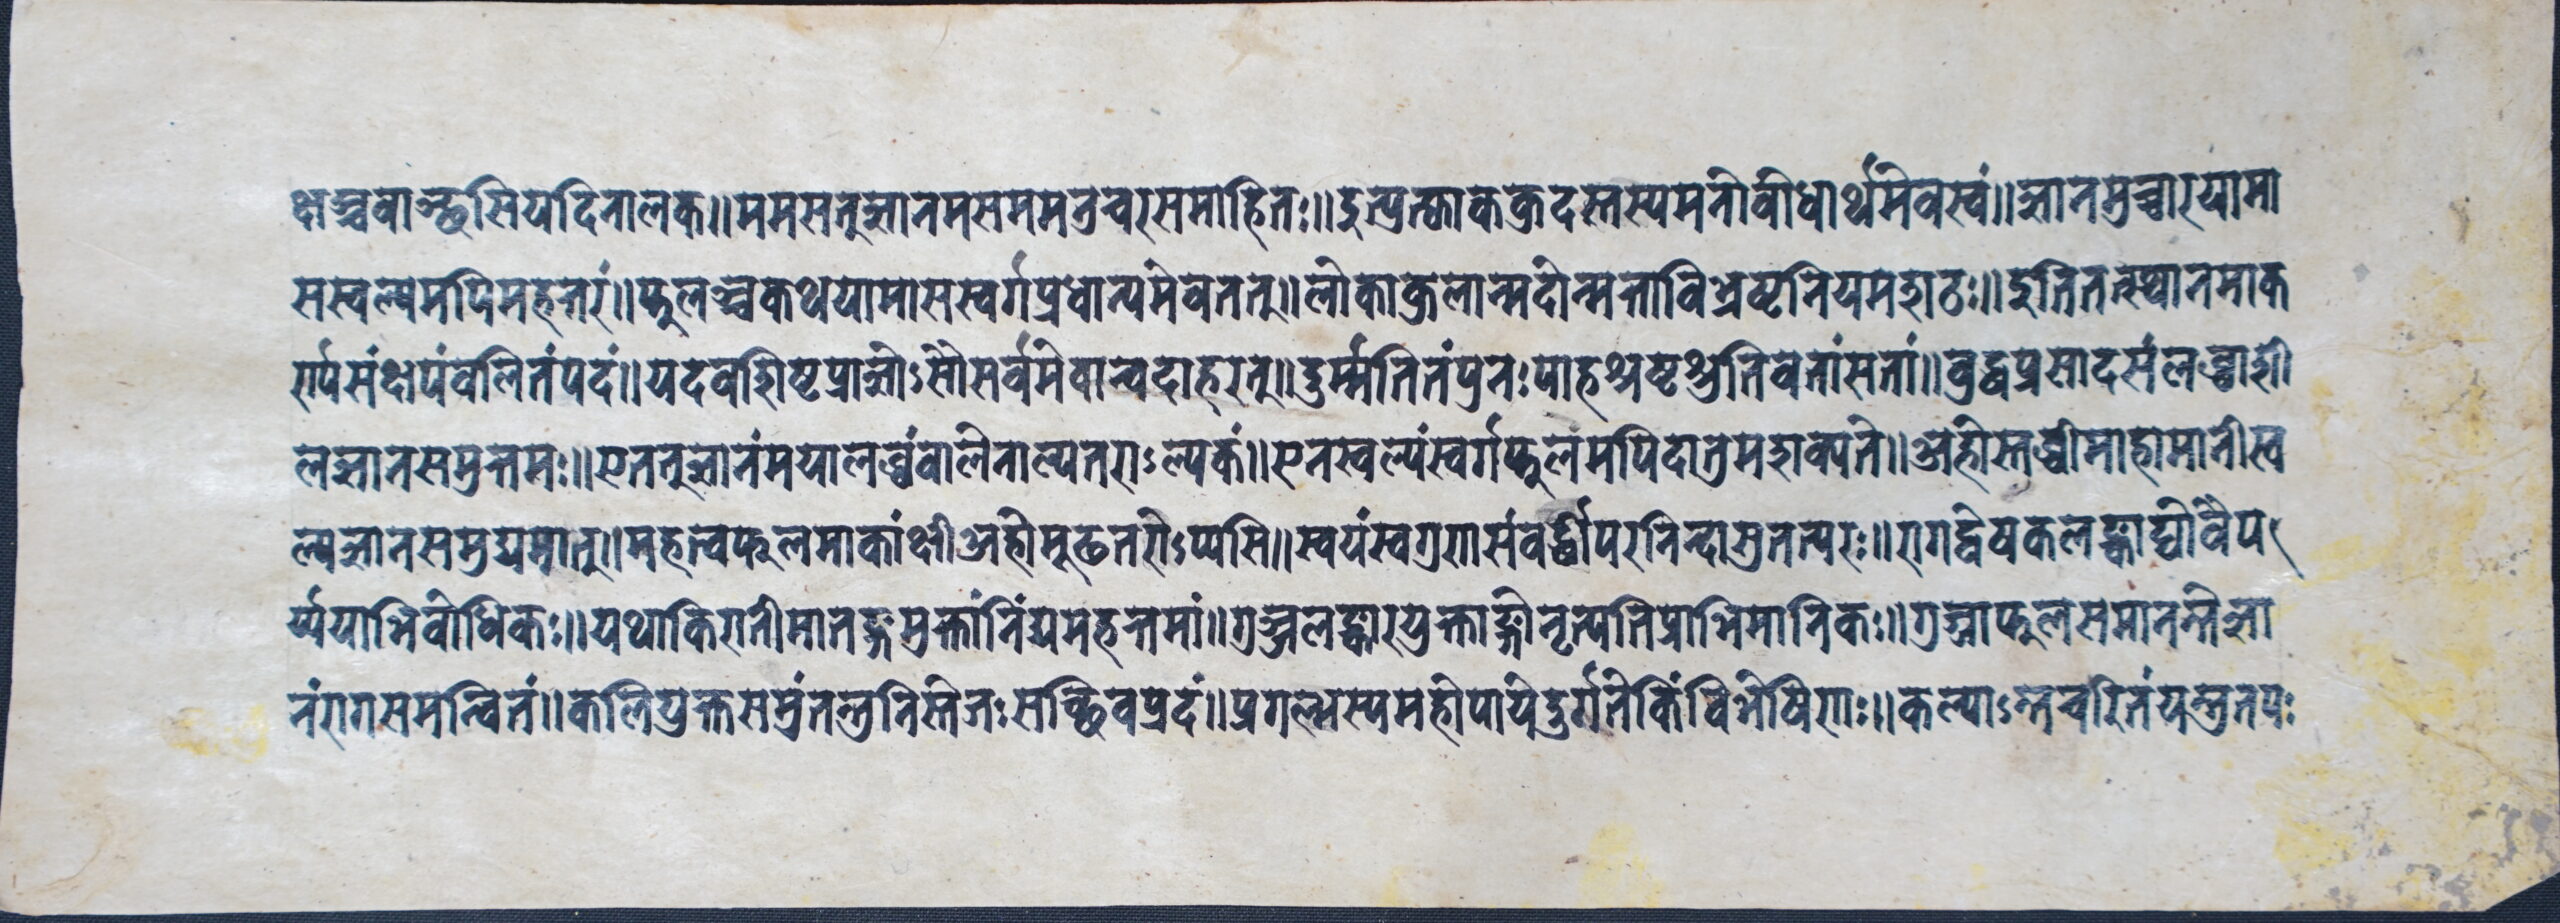 क्षञ्चवाञ्छसियदिनालक॥ममसतत्ज्ञानमसममतन्चरसमाहितः॥इत्युत्काकक्रुदस्तस्यमनोवोधार्थमेवस्वं॥ज्ञानमुच्चारयामा
सस्वल्पमपिमहत्तरं॥फुलञ्चकथयामासस्वर्गप्रधान्यमेवतत्॥लोकाकुलान्मदोन्मत्ताविभ्रष्टनियमशठः॥इतितत्स्थानमाक
र्ण्यसंक्षपंवलितंपदं॥यदवशिष्टप्राज्ञोऽसौसर्वमेवान्वदाहरत्॥दुर्म्मतितंपुनःपाहअष्टश्रुतिवेत्तांसतां॥वुद्धप्रसादसंलब्धाशी
लज्ञानसमुत्तमः॥एतत्ज्ञानंमयालब्धंवालेनाल्पतराऽल्पकं॥एनस्वल्पंस्वर्गफुलमपिदातुमशक्यते॥अहोस्तब्धीमाहामानीस्व
ल्पज्ञानसमुद्यमात्॥महत्वफुलमाकांक्षीअहोमूढतरोऽप्यसि॥स्वयंस्वगुणसंवर्द्धीपरनिन्दासुतत्परः॥रागद्वेषकलङ्काघीवैप
र्य्ययाभिवोधिकः॥यथाकिरातीमातङ्गमुक्तांनिंद्यमहत्तमां॥गुञ्जलङ्कारयुक्ताङ्गीनृत्यतिप्राभिमानिकः॥गुञ्जाफुलसमानन्तेज्ञा
नंरागसमन्वितं॥कलियुक्तसमुंतन्तुनिस्तेजःसच्छिवप्रदं॥प्रगल्भस्यमहोपायेदुर्गतेकिंविभीषिणः॥कल्पाऽन्तचरितंयन्तुतपः